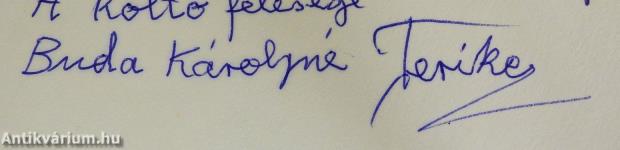 A költő felesége
Buda Károlyné Terike
Antikvárium.hu